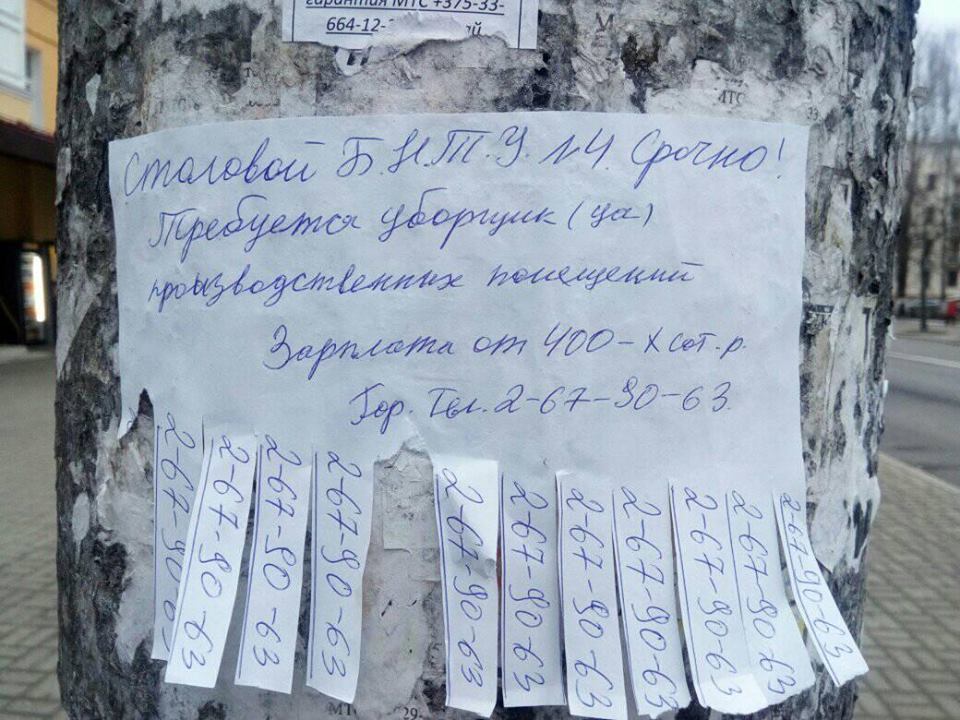 гарантия МТС +375-33-
664-12-
Столовой Б.Н.Т.У. №4. Срочно!
Требуется уборщик (ца)
производственных помещений
Зарплата от 400-х сот. р.
Гор. Тел. 2-67-90-63.
2-67-90-63
2-67-90-63
2-67-90-63
2-67-90-63
2-67-90-63
2-67-90-63
2-67-90-63
2-67-90-63
2-67-90-63
2-67-90-63
2-67-90-63
МТС
29-